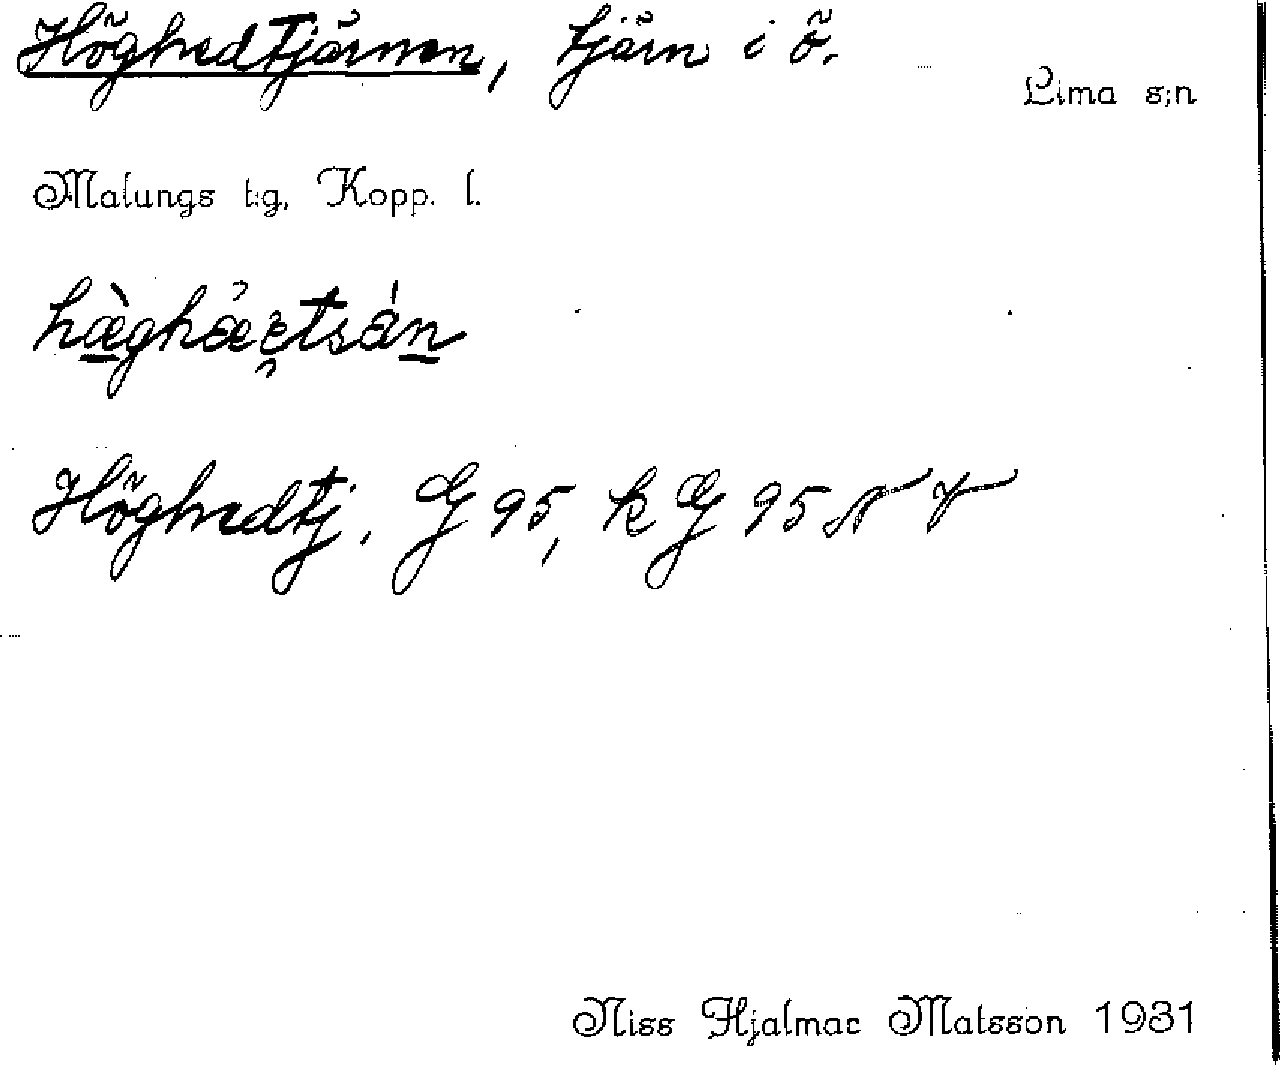 Höghedtjärnen, tjärn i ö.
Lima s:n
Malungs t:g, Kopp. l.
Höghedtj. G 95, k G 95 N V
Niss Hjalmar Matsson 1931